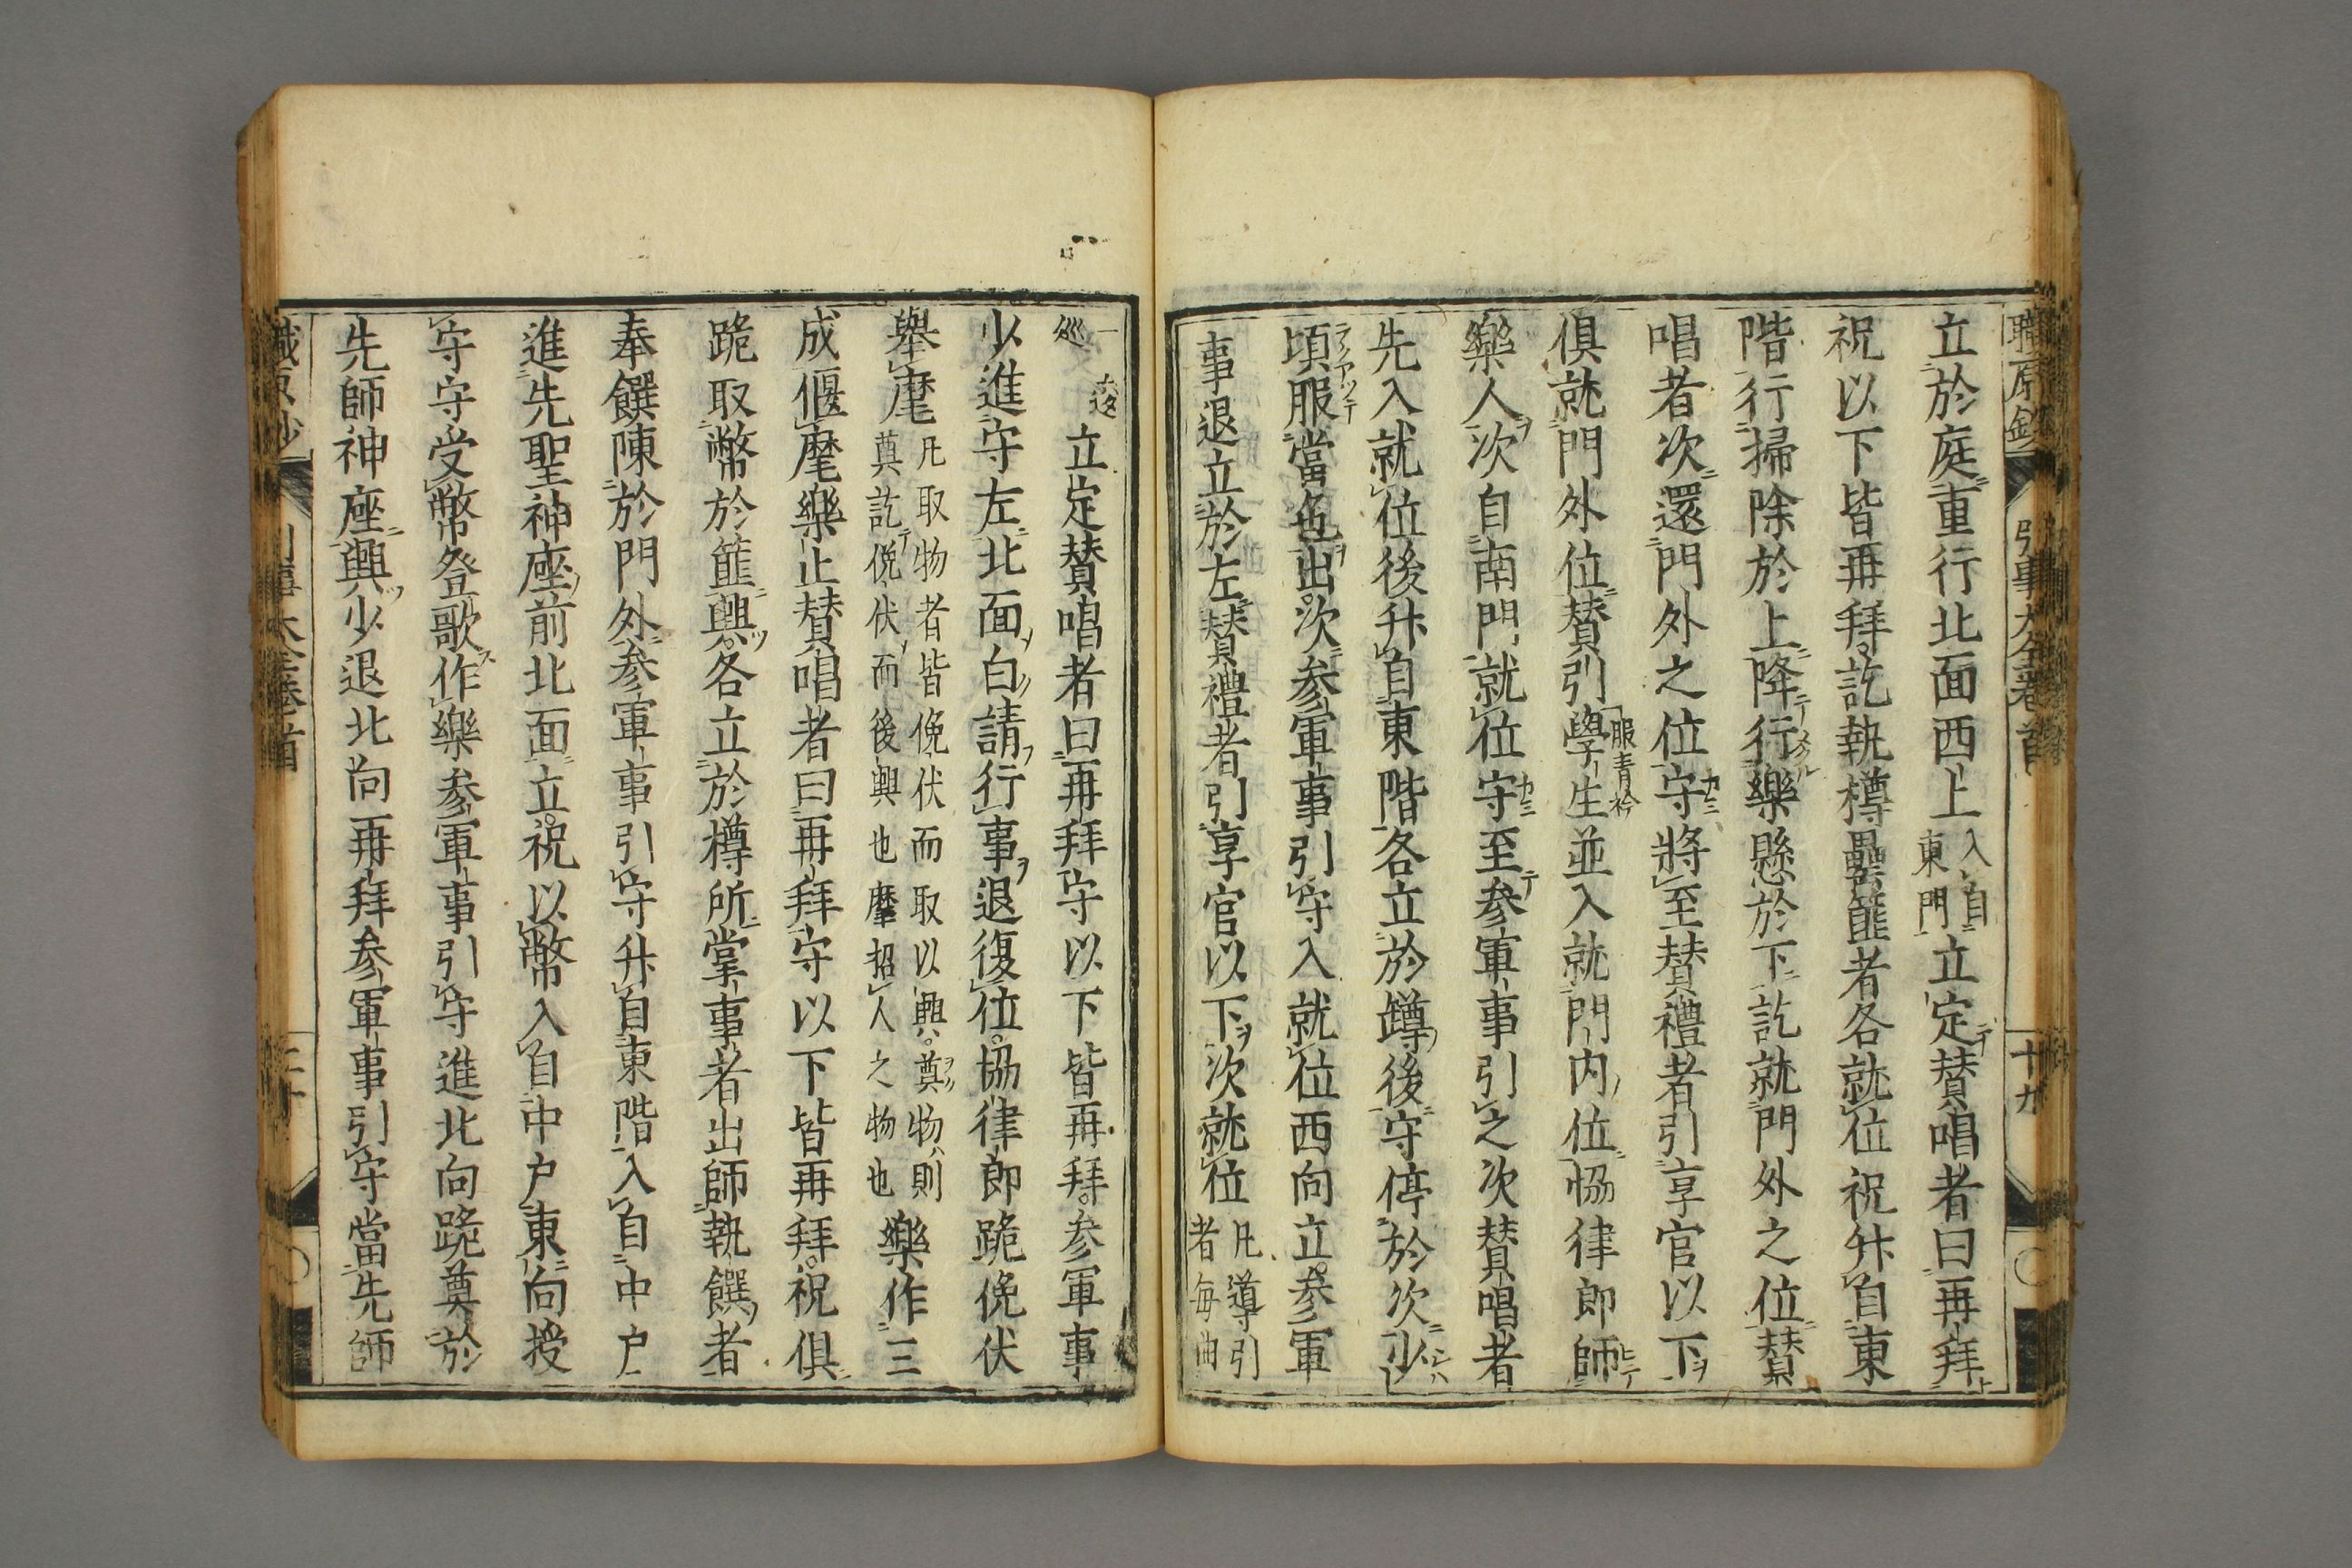 職原鈔 引事大全卷首 十九
立於庭重行北面西上入自東門立定賛唱者曰再拜
祝以下皆再拜訖執樽罍篚者各就位祝升自東
階行掃除於上降行樂懸於下訖就門外之位賛
唱者次還門外之位守將至賛禮者引享官以下
俱就門外位賛引學生服青衿並入就門内位協律郎師
樂人次自南門就位守至参軍事引之次賛唱者
先入就位後升自東階各立於罇後守停於次少
頃服當色出次参軍事引守入就位西向立参軍
事退立於左賛禮者引享官以下次就位凡導引者毎曲
一巡立定賛唱者曰再拜守以下皆再拜参軍事
少進守左北面白請行事退復位協律郎跪俛伏
舉麾凡取物者皆俛伏而取以興奠物則奠訖俛伏而後興也麾招人之物也樂作三
成偃麾樂止賛唱者曰再拜守以下皆再拜祝俱
跪取幣於篚興各立於樽所掌事者出師執饌者
奉饌陳於門外参軍事引守升自東階入自中戸
進先聖神座前北面立祝以幣入自中戸東向授
守守受幣登歌作樂参軍事引守進北向跪奠於
先師神座興少退北向再拜参軍事引守當先師
職原鈔 引事大全卷首 二十